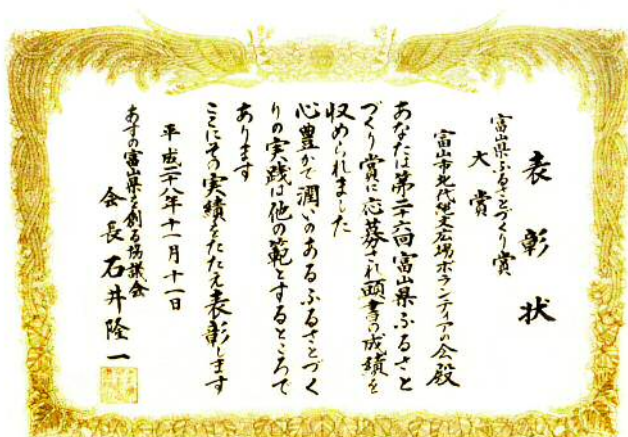 表彰状
富山県ふるさとづくり賞
大賞
富山市北代縄文広場ボランティアの会殿
あなたは第二十六回富山県ふるさと
づくり賞に応募され頭書の成績を
収められました
心豊かで潤いのあるふるさとづく
りの実践は他の範とするところで
あります
ここにその実績をたたえ表彰します
平成二八年十一月十一日
あすの富山県を創る協議会
会長 石井隆一